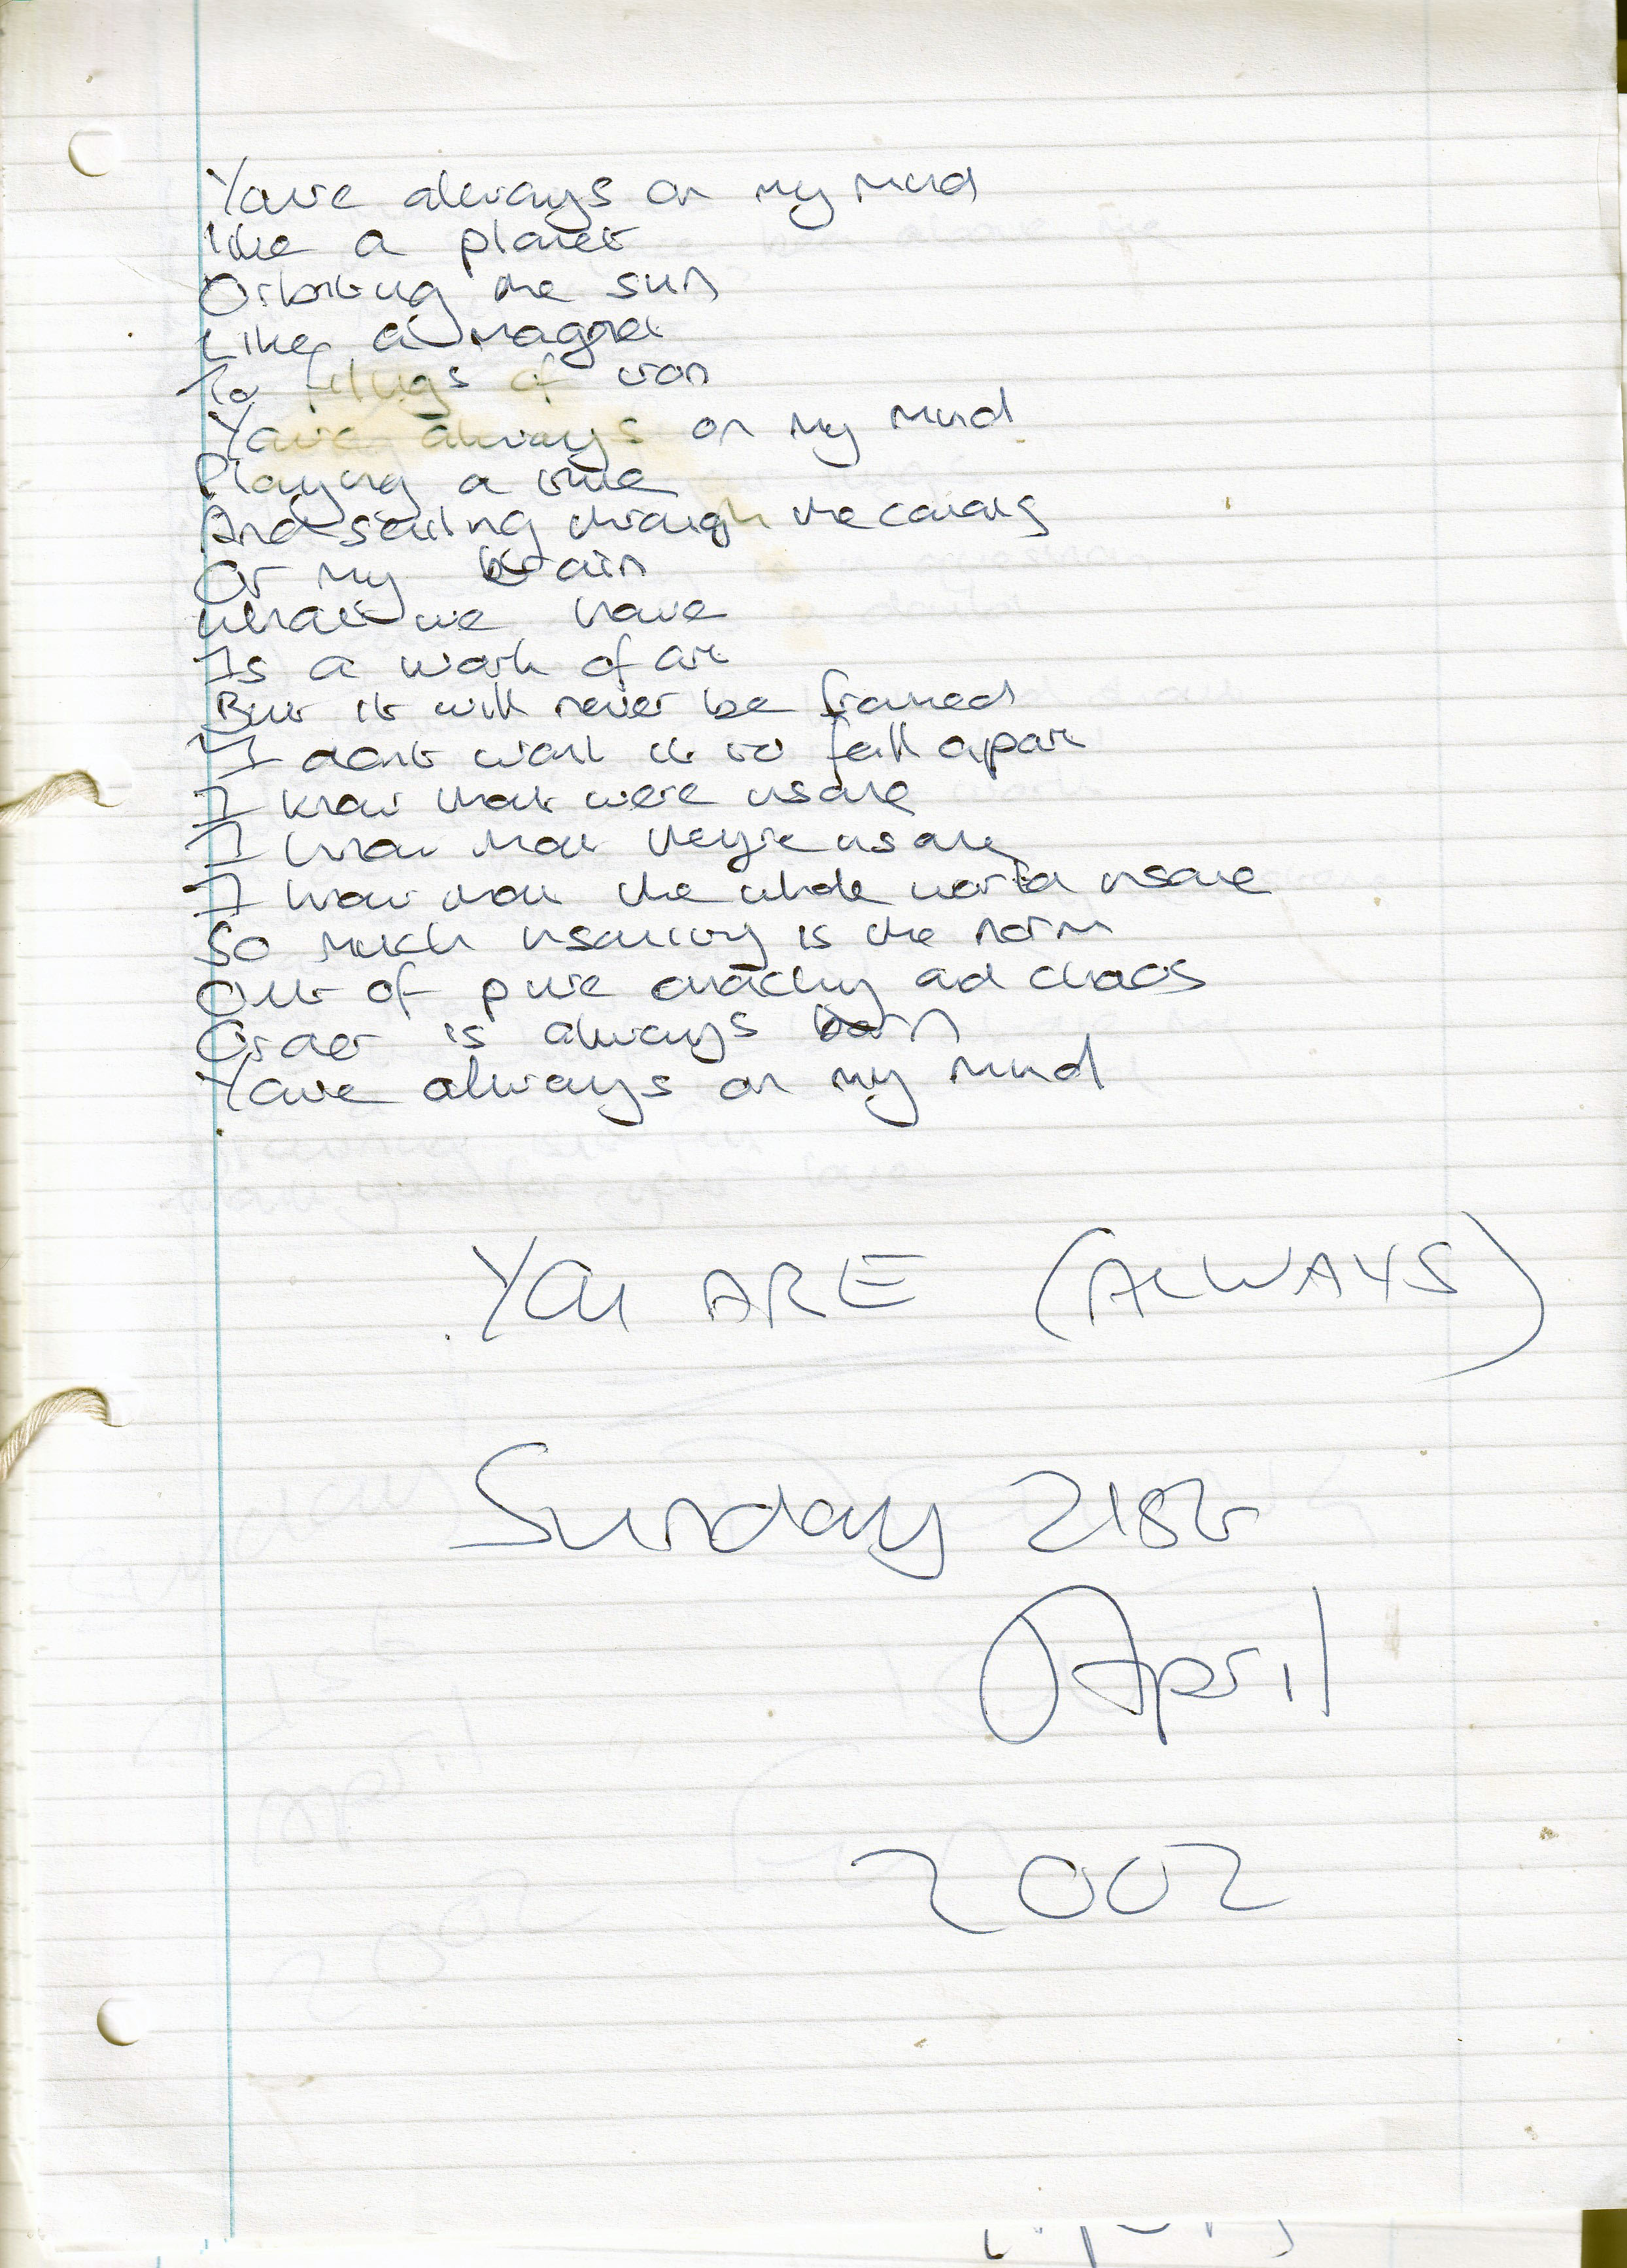 Youre always on my mind
like a planet
Orbiting the sun
Like a magnet
To filings of iron
Youre always on my mind
Playing a tune
And sailing through the canals
Of my brain
what we have
Is a work of art
But it will never be framed
I dont want it to fall apart
I know that were insane
I know that theyre insane
I know that the whole world insane
So much insanity is the norm
Out of pure anarchy and chaos
Order is always born
Youre always on my mind
YOU ARE (ALWAYS)
Sunday 21st
April
2002